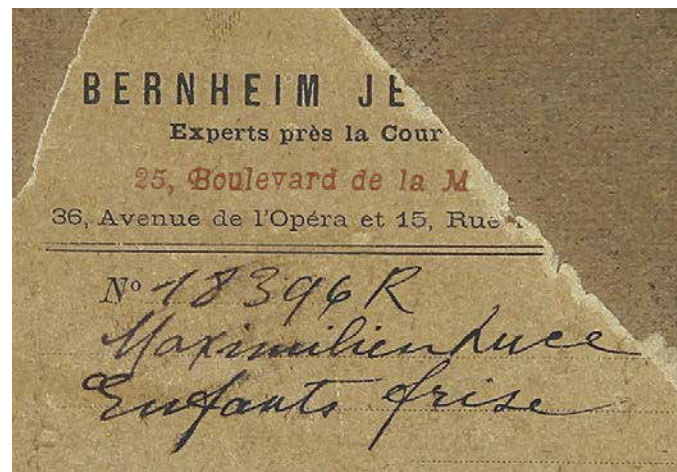 BERNHEIM JE
Experts près la Cour
25, Boulevard de la M
36, Avenue de l'Opéra et 15, Rue
Nº 18396 R
Maximilien Luce
Enfants frise